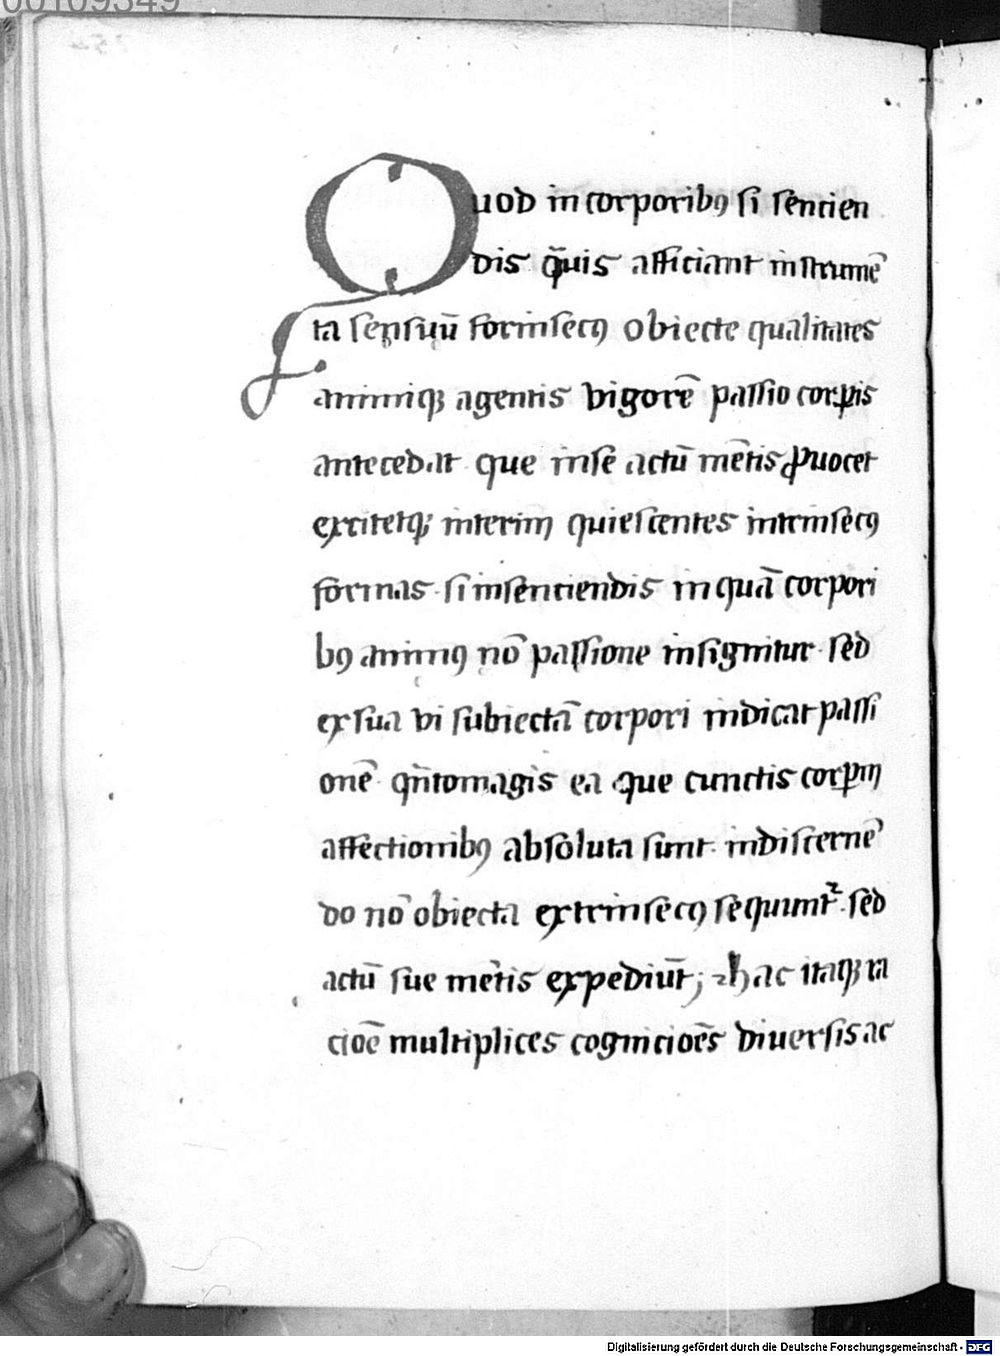 00109349
Quod in corporibꝯ si sentien
dis q̃uis afficiant instrumē
ta sensuū forinsecꝯ obiecte qualitates
animiqꝫ agentis vigorē passio corꝑis
antecedat que inse actū mētis ꝓuocet
excitetqꝫ interim quiescentes intrinsecꝯ
formas si insentiendis in quā corpori
bꝯ animꝯ nō passione insignitur sed
ex sua vi subiectā corpori indicat passi
onē qñtomagis ea que cunctis corꝑm
affectionibꝯ absoluta sunt indiscernē
do nō obiecta extrinsecꝯ sequunt᷑ sed
actū sue mētis expediūt; hac itaqꝫ ra
cioē multiplices cognicioēs diuersis ac
Digitalisierung gefördert durch die Deutsche Forschungsgemeinschaft - DFG